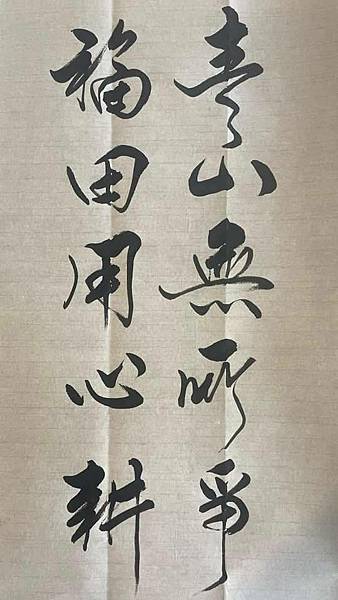 青山無所爭
福田用心耕